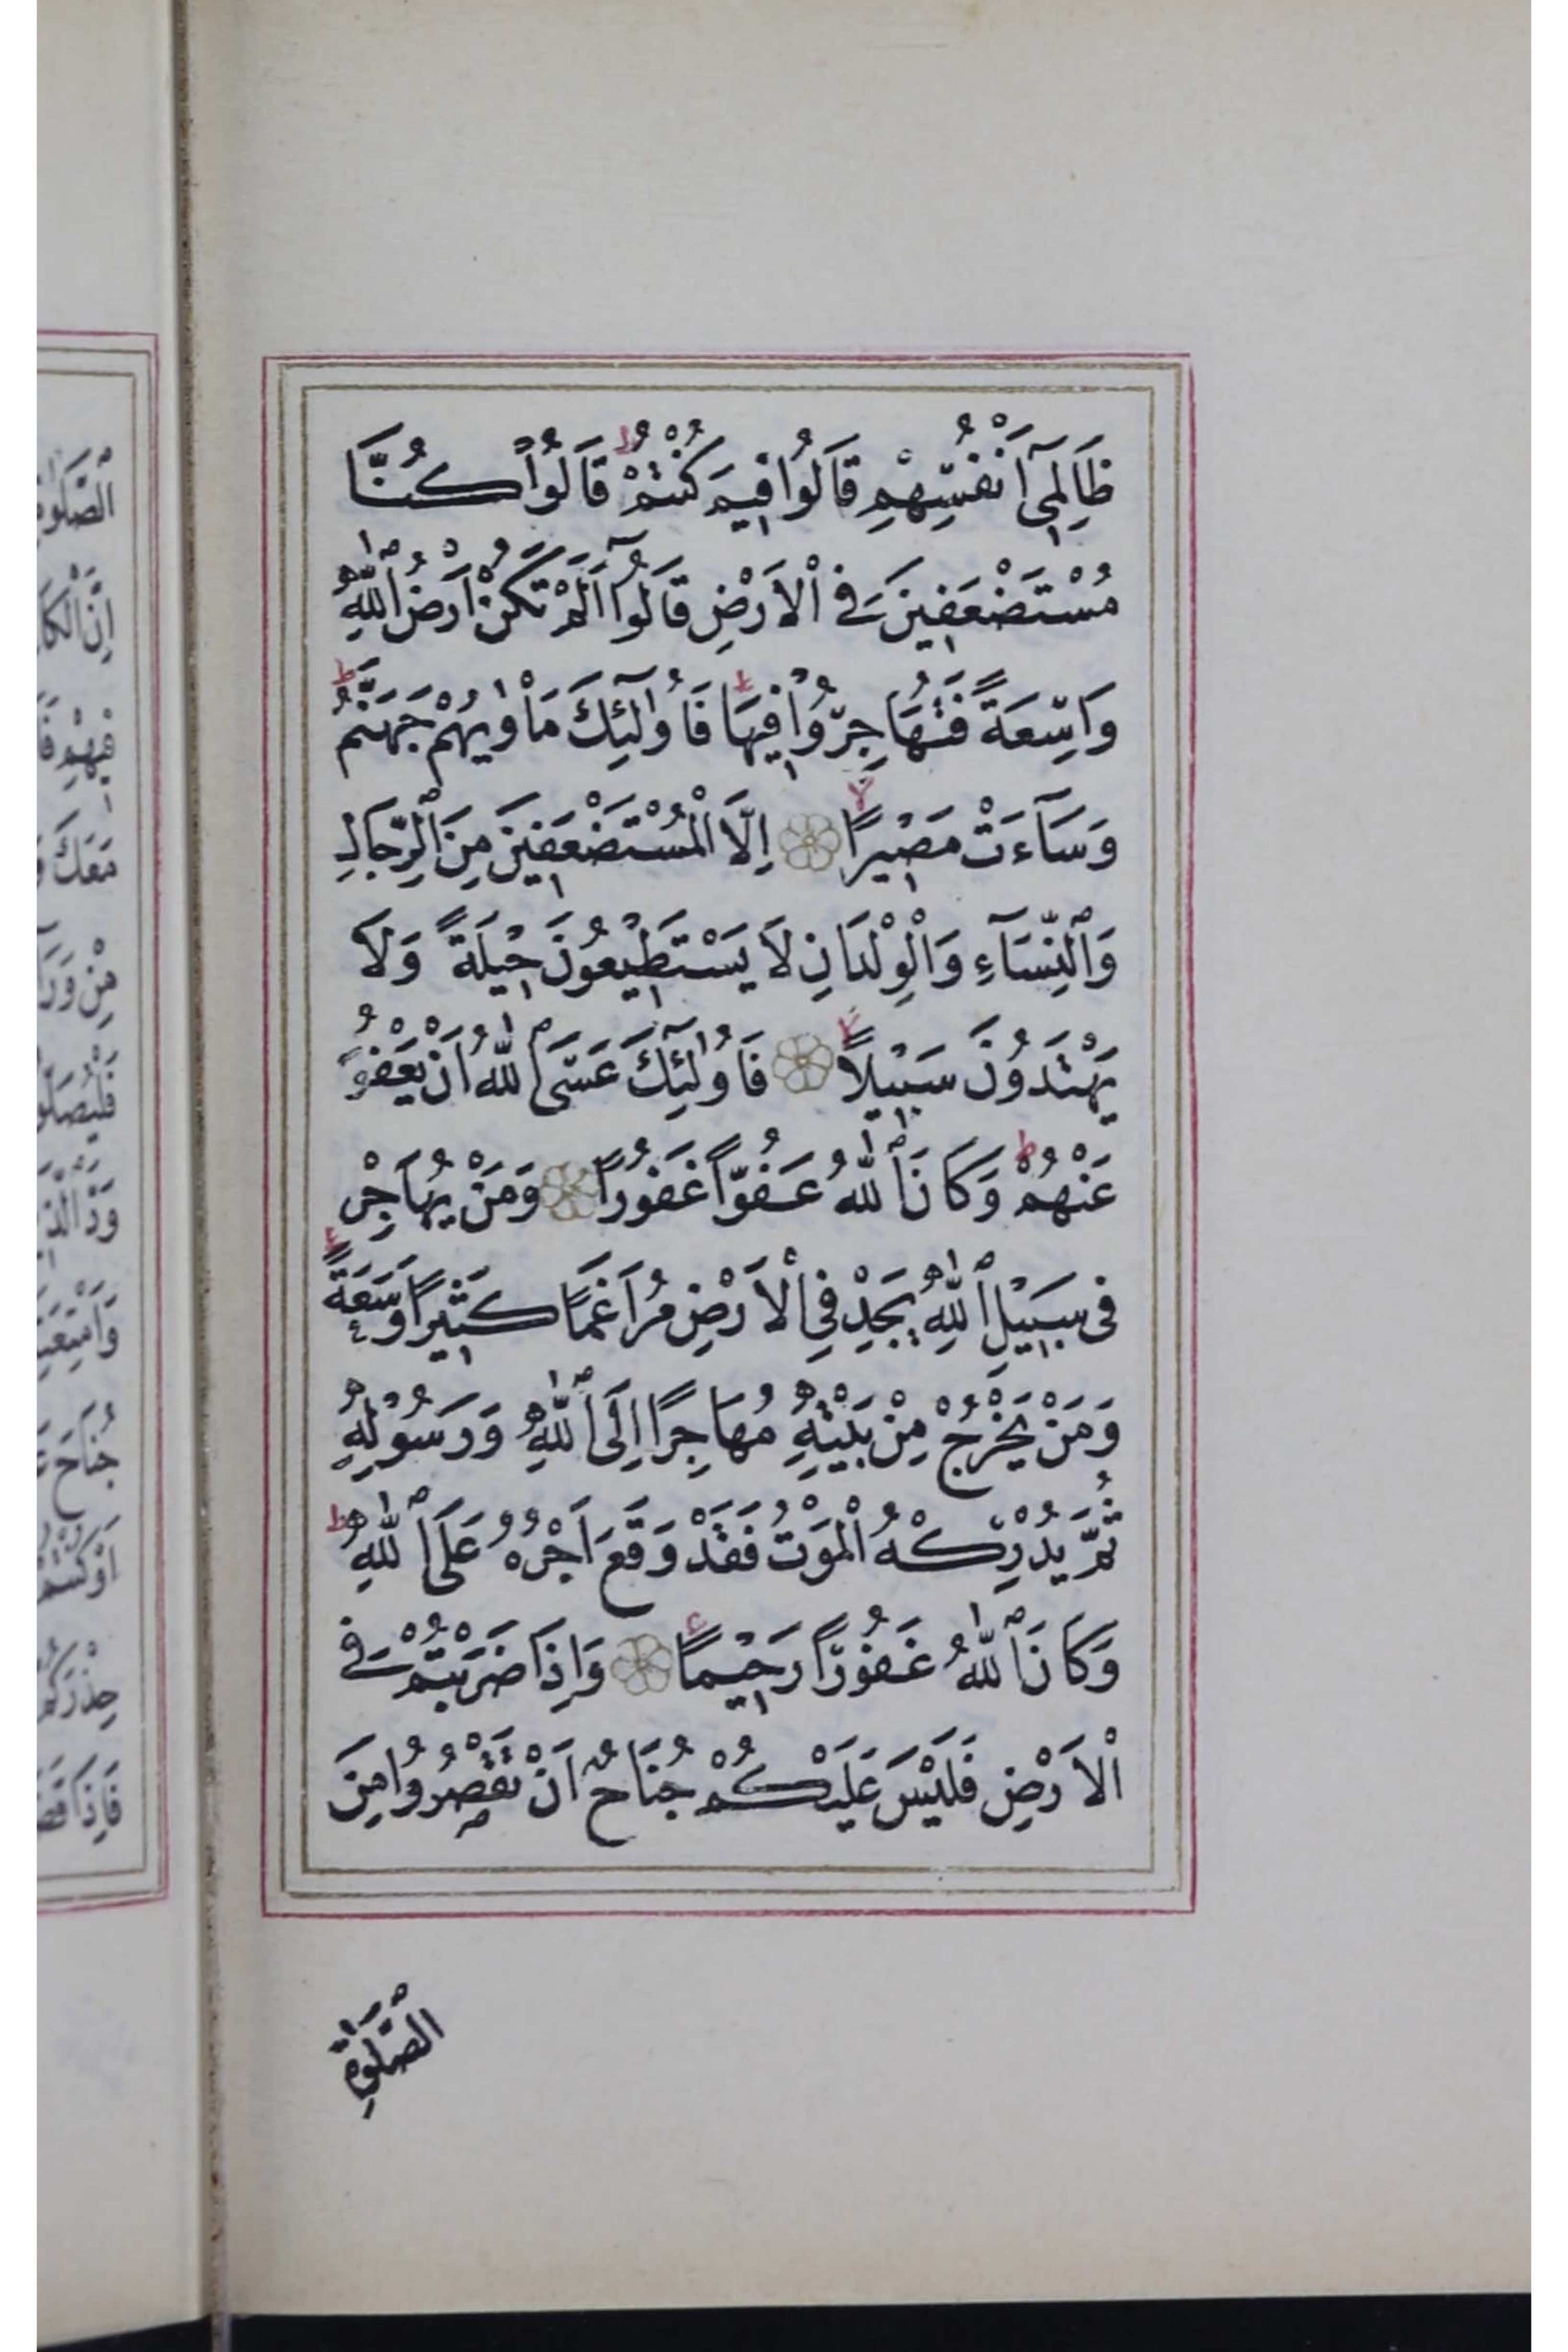 ظَالِمِىٓ اَنْفُسِهِمْ قَالُوا فِيمَ كُنْتُمْ ط قَالُوا كُنَّا
مُسْتَضْعَفِينَ فِى ٱلْاَرْضِ قَالُوٓا اَلَمْ تَكُنْ اَرْضُ ٱللّٰهِ
وَاسِعَةً فَتُهَاجِرُوا فِيهَا ط فَاُولٰٓئِكَ مَاْوٰيهُمْ جَهَنَّمُ ط
وَسَآءَتْ مَصِيرًا لا اِلَّا ٱلْمُسْتَضْعَفِينَ مِنَ ٱلرِّجَالِ
وَٱلنِّسَآءِ وَٱلْوِلْدَانِ لَا يَسْتَطِيعُونَ حِيلَةً وَلَا
يَهْتَدُونَ سَبِيلًا لا فَاُولٰٓئِكَ عَسَى ٱللّٰهُ اَنْ يَعْفُوَ
عَنْهُمْ ط وَكَانَ ٱللّٰهُ عَفُوًّا غَفُورًا وَمَنْ يُهَاجِرْ
فِى سَبِيلِ ٱللّٰهِ يَجِدْ فِى ٱلْاَرْضِ مُرَاغَمًا كَثِيرًا وَسَعَةً
وَمَنْ يَخْرُجْ مِنْ بَيْتِهِ مُهَاجِرًا اِلَى ٱللّٰهِ وَرَسُولِهِ
ثُمَّ يُدْرِكْهُ ٱلْمَوْتُ فَقَدْ وَقَعَ اَجْرُهُ عَلَى ٱللّٰهِ ط
وَكَانَ ٱللّٰهُ غَفُورًا رَحِيمًا ع وَاِذَا ضَرَبْتُمْ فِى
ٱلْاَرْضِ فَلَيْسَ عَلَيْكُمْ جُنَاحٌ اَنْ تَقْصُرُوا مِنَ
ٱلصَّلٰوةِ